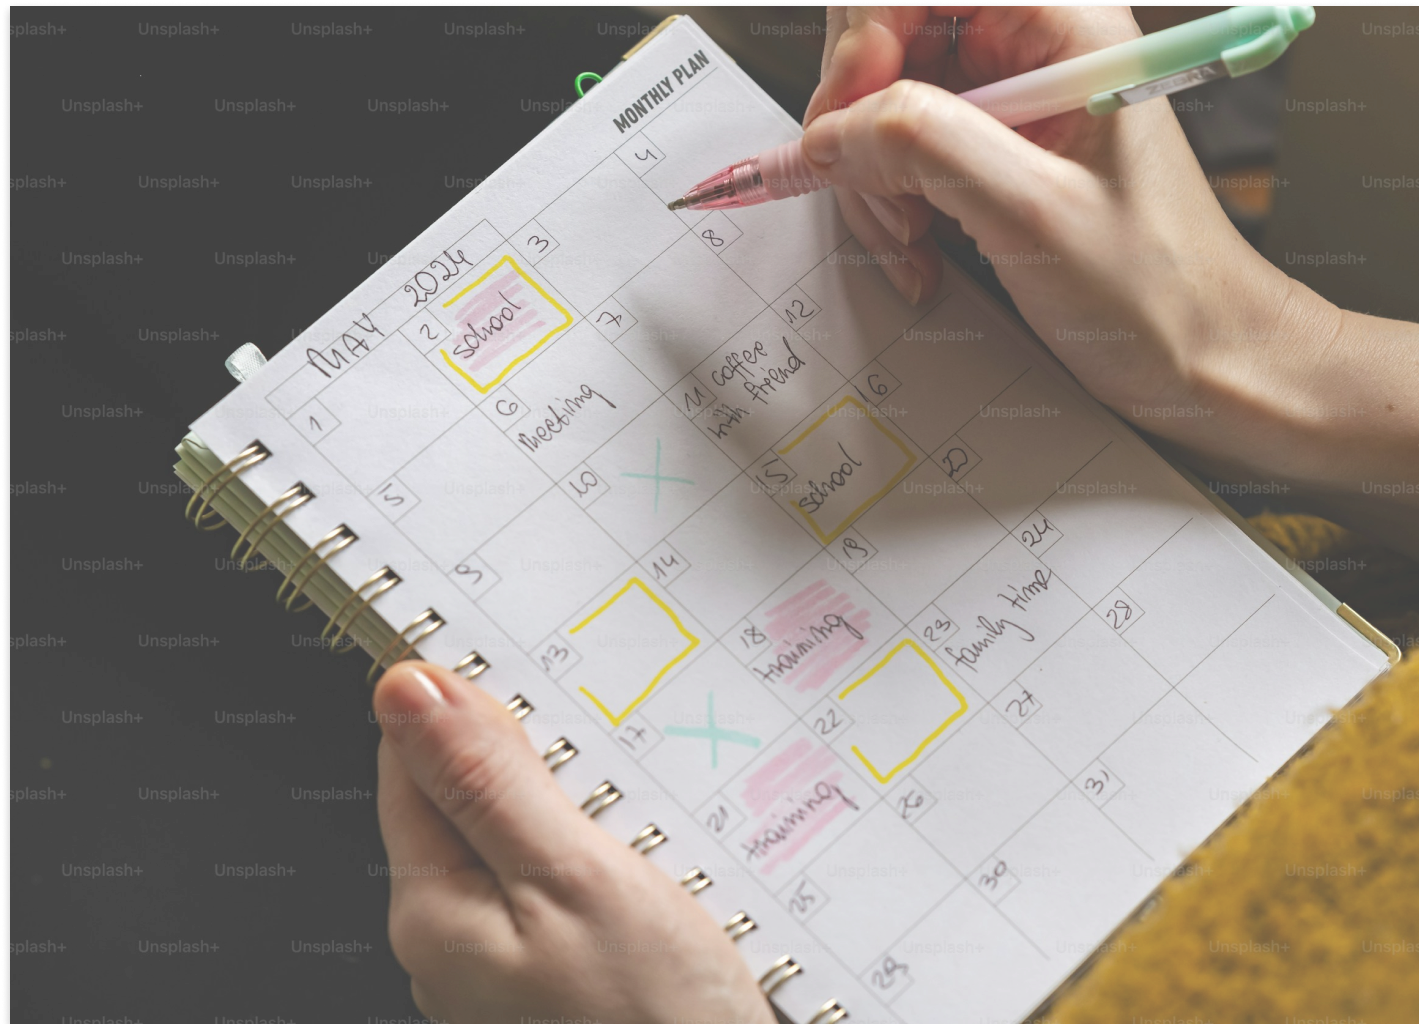 MONTHLY PLAN
MAY 2024
1
2 school
3
4
5
6 meeting
7
8
9
10
11 coffee
with friend
12
13
14
15 school
16
17
18 training
19
20
21 training
22
23 family time
24
25
26
27
28
29
30
31
ZEBRA
Unsplash+